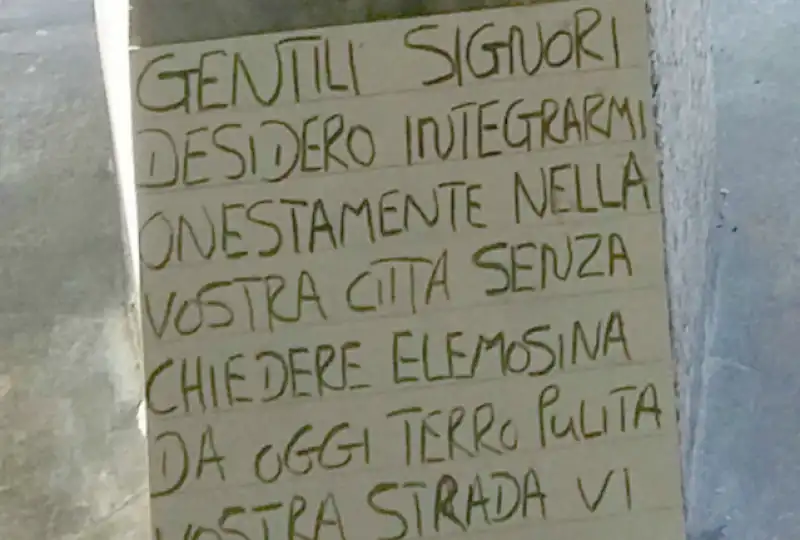 GENTILI SIGNORI
DESIDERO INTEGRARMI
ONESTAMENTE NELLA
VOSTRA CITTA SENZA
CHIEDERE ELEMOSINA
DA OGGI TERRO PULITA
VOSTRA STRADA VI